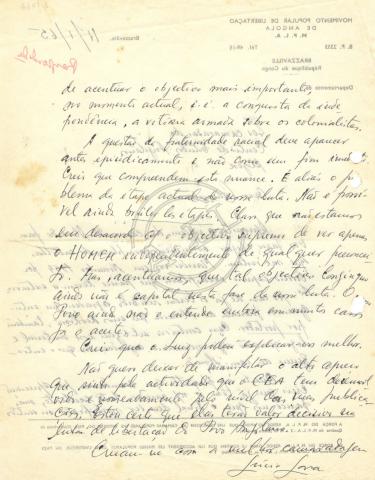 MOVIMENTO POPULAR DE LIBERTAÇÃO
DE ANGOLA
M. P. L. A.
B. P. 2353 Tel.
BRAZZAVILLE
République du Congo
Brazzaville,
de acentuar o objectivo mais importante
no momento actual, i.é. a conquista da inde
pendência, a vitória armada sobre os colonialistas.
A questão da fraternidade racial deve aparecer
antes episodicamente e não como um fim
Creio que compreendem esta nuance. E aliás o pro
blema da etapa actual da nossa luta. Não é possí
vel ainda brûler les étapes. Claro que não estamos
em desacordo c/ o objectivo supremo de ver apenas
o HOMEM independentemente de qualquer
Mas acentuamos que tal objectivo
ainda não é capital nesta fase da nossa luta. O
Povo ainda não o entende embora em muitos casos
já o aceite.
Creio que o Luiz poderá explicar-vos melhor.
Não quero deixar de manifestar o alto apreço
que sinto pela actividade que o CEA tem desenvol
vido e nomeadamente pelo nível das suas publica
ções. Estou certo que elas terão valor decisivo na
luta de libertação do Povo Angolano.
Creiam-me com a melhor camaradagem
Lúcio Lara